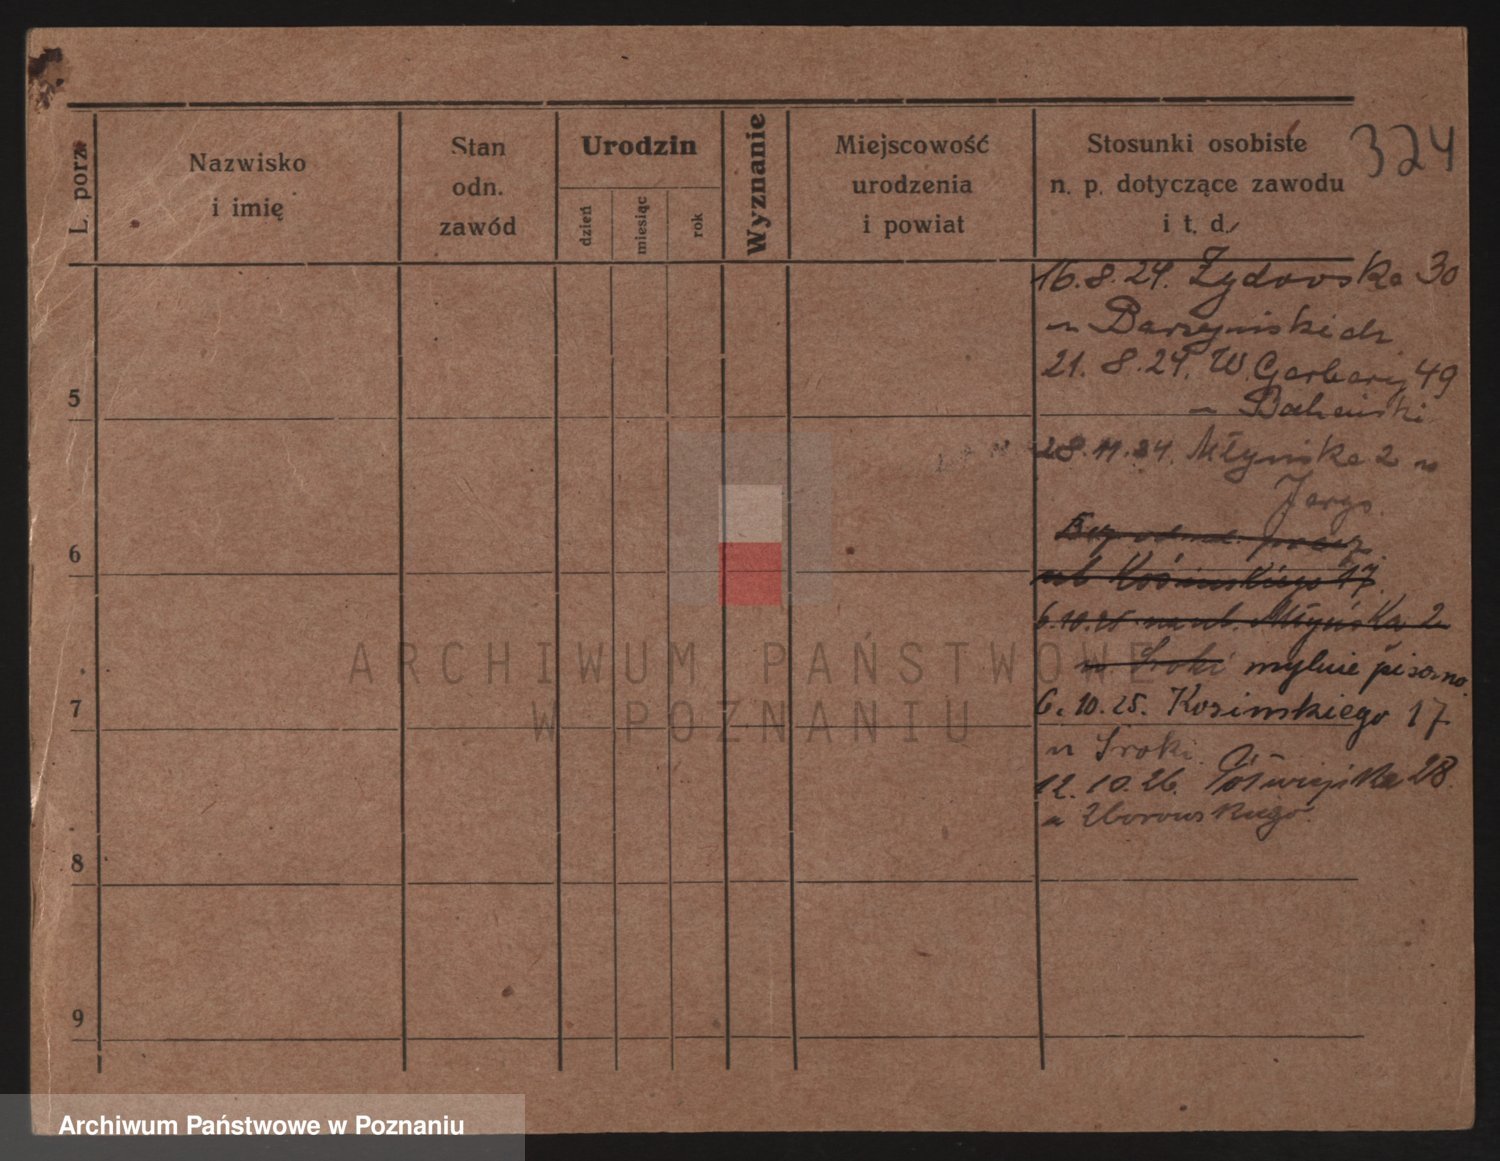 324
L. porz.
Nazwisko
i imię
Stan
odn.
zawód
Urodzin
dzień
miesiąc
rok
Wyznanie
Miejscowość
urodzenia
i powiat
Stosunki osobiste
n. p. dotyczące zawodu
i t. d.
16.8.24. Żydowska 30
u Barzyńskich
21.8.24. W. Garbary 49
u
5
28.11.24. Młyńska 2 u
6
ul Kosińskiego 17
6.10.25 na ul. Młyńska 2
u Sroki mylnie pisano.
7
6.10.25. Kosinskiego 17
u Sroki.
12.10.26. Półwiejska 28.
u Zborowskiego.
8
9
ARCHIWUM PAŃSTWOWE
W POZNANIU
Archiwum Państwowe w Poznaniu